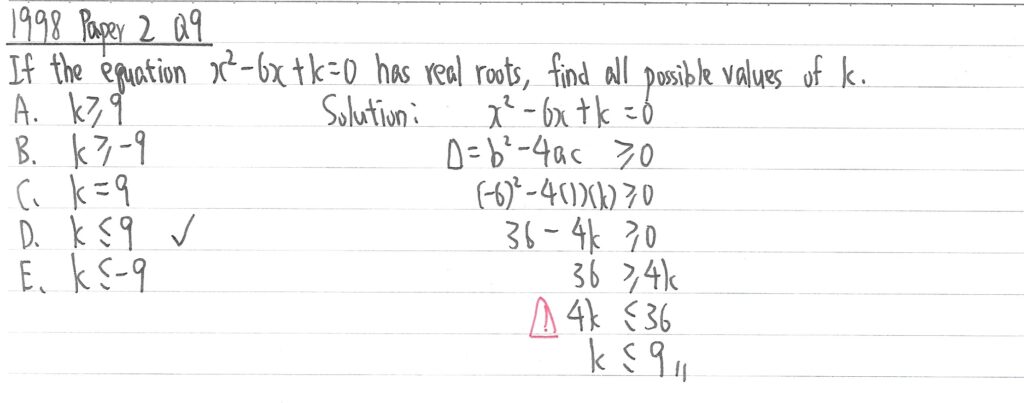 1998 Paper 2 Q9
If the equation x²-6x+k=0 has real roots, find all possible values of k.
A. k≥9
B. k≥-9
C. k=9
D. k≤9 ✓
E. k≤-9
Solution: x²-6x+k=0
D=b²-4ac ≥0
(-6)²-4(1)(k)≥0
36-4k ≥0
36 ≥4k
! 4k ≤36
k ≤9